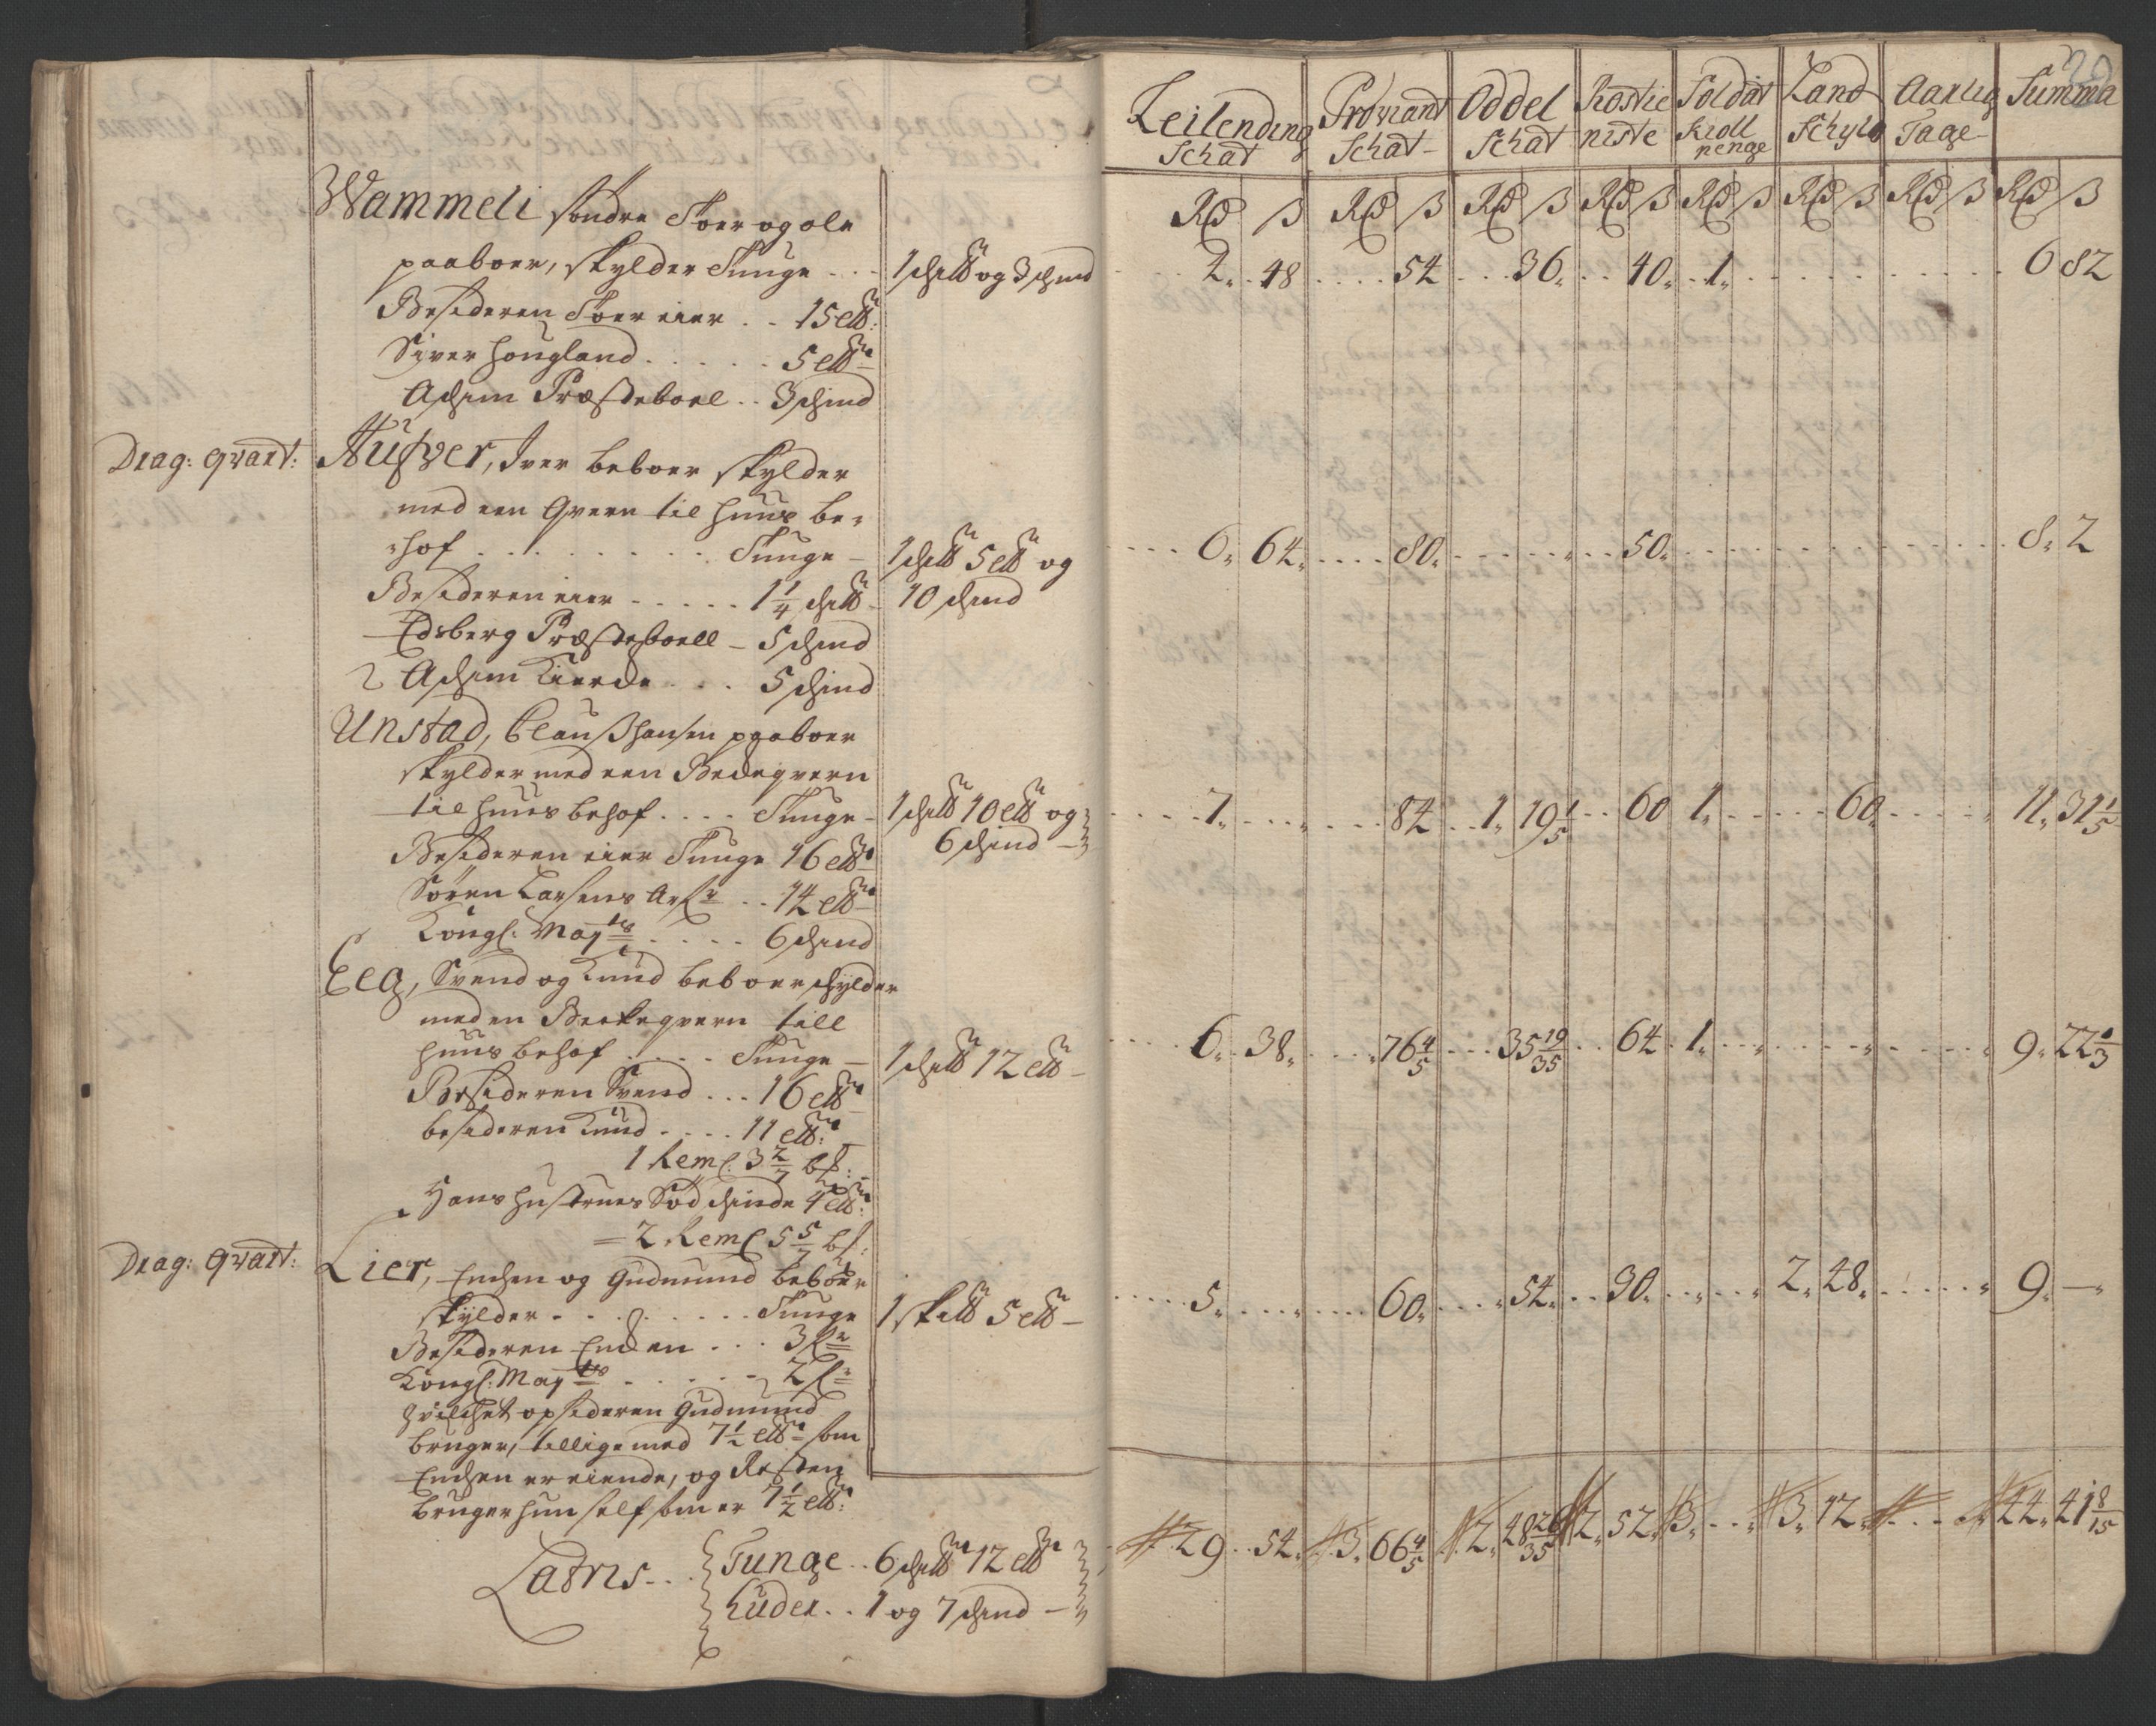 Wammeli søndre Toer og ole
paaboer, skylder Tunge - - - 1 sch℔ og 3 schind
Besideren Toer eier . . 15 ℔:
Siver Hougland . . . . . 5 ℔
Aschim Præsteboel . . 3 schind
Drag: qvart: Hufver, Iver beboer skylder
med een Qvern til huus be-
hof . . . . . . . . Tunge - 1 sch℔ 5 ℔ og
Besideren eier - - - - - 1 1/4 sch℔ - 10 schind
Edsberg Præsteboell - 5 schind
Aschim Kierche . . . 5 schind
Unstad, Clauss Hansen paaboer
skylder med een Becheqvern
til huus behof . . . . Tunge - 1 sch℔ 10 ℔ og
Besideren eier Tunge 16 ℔ 6 schind -
Søren Larsens Arf: . . 14 ℔
Kongl: May:ts . . . . . 6 schind
Eeg, Svend og Knud beboer schylder
med en Beckeqvern till
huus behof . . . . Tunge - 1 sch℔ 12 ℔ -
Besideren Svend . . . 16 ℔
besideren Knud . . . . 11 ℔:
1 Reml: 3 2/7 bs:
Hans Hustrues Sødschinde 4 ℔:
= 2 Reml 5 5/7 bs:
Drag: qvart: Lier, Endsen og Gudmund beboer
skylder - . . . . . . . Tunge 1 sk℔ 5 ℔ -
Besideren Endsen . . . 3 f:
Kongl: May:ts - . . . - 2 f:
hvilchet opsideren Gudmund
bruger, tillige med 7 1/2 ℔ som
Endsen er eiende, og Resten
bruger hun self som er 7 1/2 ℔:
Lateris . . . Tunge . . 6 sch℔ 12 ℔
Huder . . 1 og 7 schind -
Leilending Schat | Proviant Schat | Oddel Schat | Rostie niste | Soldat Kioll penge | Land Schyld | Aarlig Tage | Summa
Rd ß | Rd ß | Rd ß | Rd ß | Rd ß | Rd ß | Rd ß | Rd ß
4 . 48 . . . . 54 . . . 36 . . . 40 . 1 . . . . . . 6 82
6 . 64 . . . . 80 . . . . . . 50 . . . . . . . 8 . 2
7 . . . . . 84 . . 1 . 19 1/5 . . 60 1 . . . . . 60 . . . . 11 . 31 1/5
6 . 38 . . . . 76 4/5 . . . 35 19/35 . . 64 1 . . . . . . . 9 . 22 1/3
5 . . . . . 60 . . . 54 . . 30 . . . . 2 . 48 . . . . . 9 . -
29 . . 54 . 3 . 66 4/5 . 2 . 48 26/35 2 . 52 . 3 . . . 3 . 12 . . . . 44 . 41 8/15